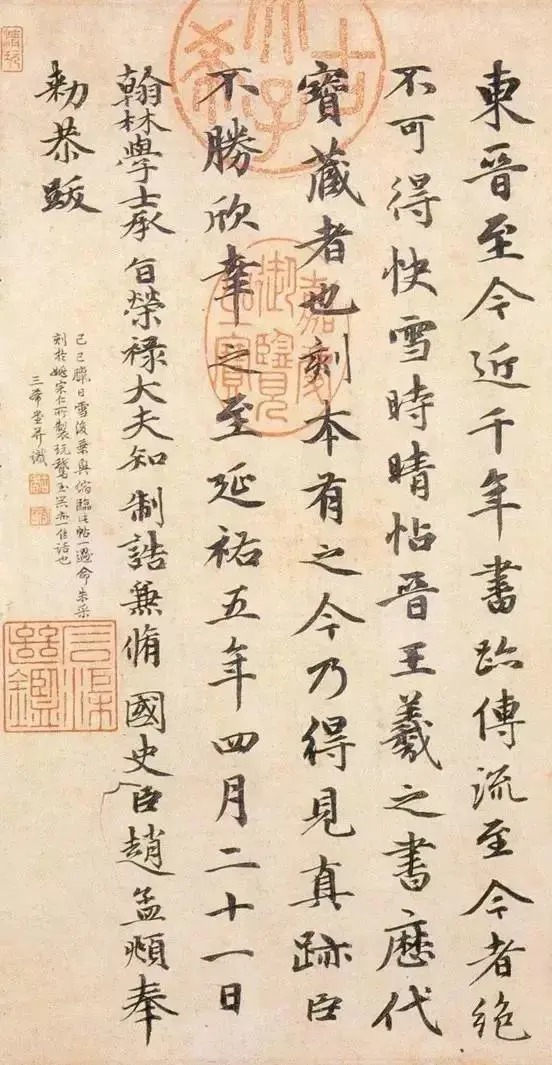 東晉至今近千年書跡傳流至今者絕
不可得快雪時晴帖晉王羲之書歷代
寶藏者也刻本有之今乃得見真跡臣
不勝欣幸之至延祐五年四月二十一日
翰林學士承旨榮祿大夫知制誥兼脩國史臣趙孟頫奉
勅恭跋
己巳臘日雪後乘興偶臨此帖一過命朱采
刻於姚宗仁所製玩鵞玉器亦一佳話也
三希堂并識
古希天子
嘉慶御覽之寶
石渠繼鑑